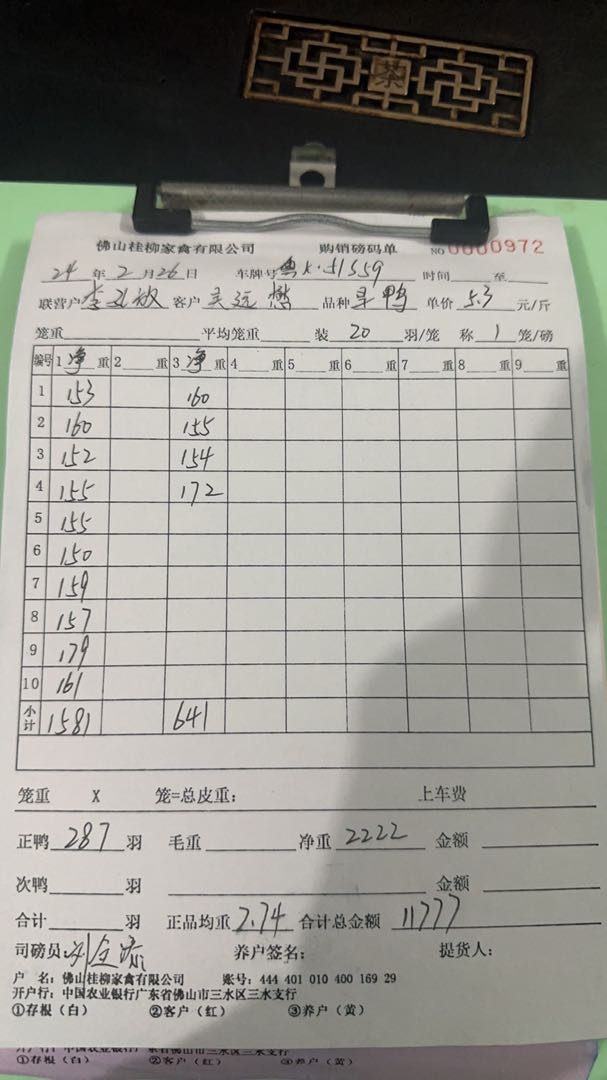 茶
佛山桂柳家禽有限公司 购销磅码单 NO 0000972
24 年 2 月 26 日 车牌号 时间 至
联营户 客户 吴远 品种 旱鸭 单价 5.3 元/斤
笼重 平均笼重 装 20 羽/笼 称 1 笼/磅
编号 1 净 重 2 重 3 净 重 4 重 5 重 6 重 7 重 8 重 9 重
1 153 160
2 160 155
3 152 154
4 155 172
5 155
6 150
7 159
8 157
9 179
10 161
小计 1581 641
笼重 X 笼=总皮重: 上车费
正鸭 287 羽 毛重 净重 2222 金额
次鸭 羽 金额
合计 羽 正品均重 7.74 合计总金额 11777
司磅员: 养户签名: 提货人:
户 名: 佛山桂柳家禽有限公司 账号: 444 401 010 400 169 29
开户行: 中国农业银行广东省佛山市三水区三水支行
①存根(白) ②客户(红) ③养户(黄)
①存根(白) ②客户(红) ③养户(黄)